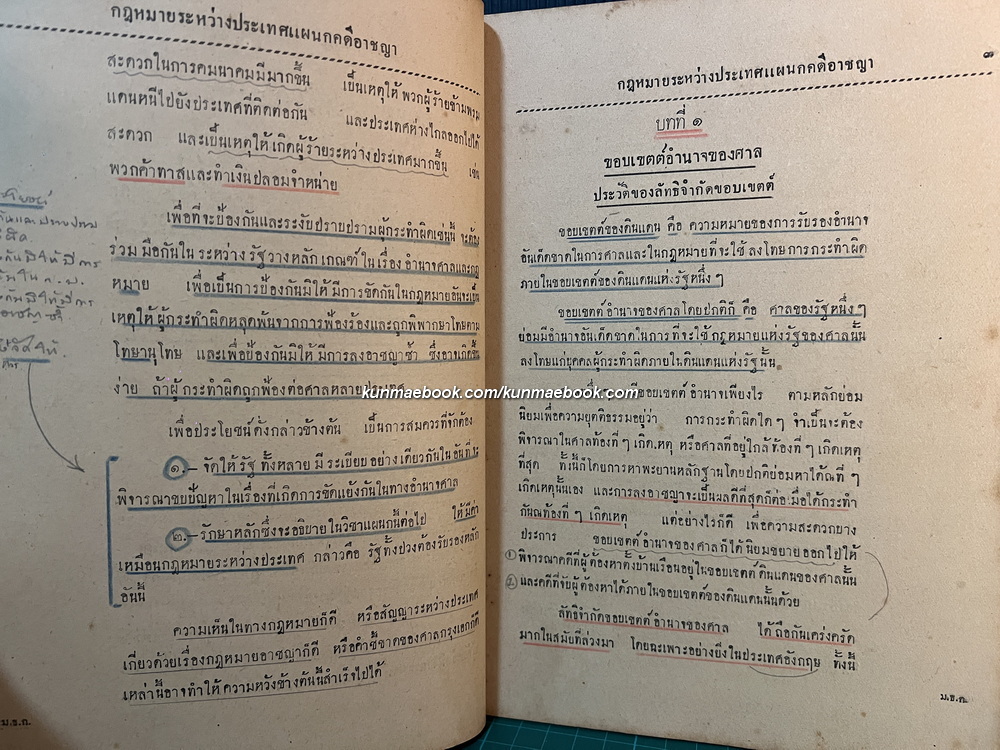 กฎหมายระหว่างประเทศแผนกคดีอาชญา
สะดวกในการคมนาคมมีมากขึ้น เป็นเหตุให้ พวกผู้ร้ายข้ามพรม
แดนหนีไปยังประเทศที่ติดต่อกัน และประเทศห่างไกลออกไปได้
สะดวก และเป็นเหตุให้เกิดผู้ร้ายระหว่างประเทศมากขึ้น เช่น
พวกค้าทาสและทำเงินปลอมจำหน่าย
เพื่อที่จะป้องกันและระงับปราบปรามผู้กระทำผิดเช่นนี้ จะต้อง
ร่วมมือกันในระหว่าง รัฐวางหลักเกณฑ์ในเรื่อง อำนาจศาลและกฎ
หมาย เพื่อเป็นการป้องกันมิให้มีการขัดกันในกฎหมายอันจะเป็น
เหตุให้ผู้กระทำผิดหลุดพ้นจากการฟ้องร้องและถูกพิพากษาโทษตาม
โทษานุโทษ และเพื่อป้องกันมิให้มีการลงอาชญาซ้ำ ซึ่งอาจเกิดขึ้น
ง่าย ถ้าผู้กระทำผิดถูกฟ้องต่อศาลหลายประเทศ
เพื่อประโยชน์ดั่งกล่าวข้างต้น เป็นการสมควรที่จักต้อง
๑.– จัดให้รัฐ ทั้งหลาย มี ระเบียบ อย่าง เดียวกันใน อันที่ จะ
พิจารณาขบปัญหาในเรื่องที่เกิดการขัดแย้งกันในทางอำนาจศาล
๒.– รักษาหลักซึ่งจะอธิบายในวิชาแผนกนี้ต่อไป ให้มีค่า
เหมือนกฎหมายระหว่างประเทศ กล่าวคือ รัฐทั้งปวงต้องรับรองหลัก
อันนี้
ความเห็นในทางกฎหมายก็ดี หรือสัญญาระหว่างประเทศ
เกี่ยวด้วยเรื่องกฎหมายอาชญาก็ดี หรือคำชี้ขาดของศาลกรุงเฮกก็ดี
เหล่านี้อาจทำให้ ความหวังข้างต้นนี้สำเร็จไปได้
ม.ธ.ก.
กฎหมายระหว่างประเทศแผนกคดีอาชญา
๓
บทที่ ๑
ขอบเขตต์อำนาจของศาล
ประวัติของลัทธิจำกัดขอบเขตต์
ขอบเขตต์ของดินแดน คือ ความหมายของการรับรองอำนาจ
อันเด็ดขาดในการศาลและในกฎหมายที่จะใช้ ลงโทษการกระทำผิด
ภายในขอบเขตต์ของดินแดนแห่งรัฐหนึ่ง ๆ
ขอบเขตต์ อำนาจของศาลโดยปกติก็ คือ ศาลของรัฐหนึ่ง ๆ
ย่อมมีอำนาจอันเด็ดขาดในการที่จะใช้กฎหมายแห่งรัฐของศาลนั้น
ลงโทษแก่บุคคลผู้กระทำผิดภายในดินแดนแห่งรัฐนั้น
kunmaebook.com/kunmaebook.com
มีขอบเขตต์ อำนาจเพียงไร ตามหลักย่อม
นิยมเพื่อความยุตติธรรมอยู่ว่า การกระทำผิดใด ๆ จำเป็นจะต้อง
พิจารณาในศาลท้องที่ ๆ เกิดเหตุ หรือศาลที่อยู่ใกล้ท้องที่ ๆ เกิดเหตุ
ที่สุด ทั้งนี้ก็โดยการหาพะยานหลักฐานโดยปกติย่อมหาได้ณที่ ๆ
เกิดเหตุนั้นเอง และการลงอาชญาจะเป็นผลดีที่สุดก็ต่อเมื่อได้กระทำ
กันณท้องที่ ๆ เกิดเหตุ แต่อย่างไรก็ดี เพื่อความสะดวกบาง
ประการ ขอบเขตต์อำนาจของศาลก็ได้นิยมขยายออกไปให้
พิจารณาคดีที่ผู้ต้องหาตั้งบ้านเรือนอยู่ในขอบเขตต์ดินแดนของศาลนั้น
และคดีที่จับผู้ต้องหาได้ภายในขอบเขตต์ของดินแดนนั้นด้วย
ลัทธิจำกัดขอบเขตต์อำนาจของศาล ได้ถือกันเคร่งครัด
มากในสมัยที่ล่วงมา โดยฉะเพาะอย่างยิ่งในประเทศอังกฤษ ทั้งนี้
ม.ธ.ก.